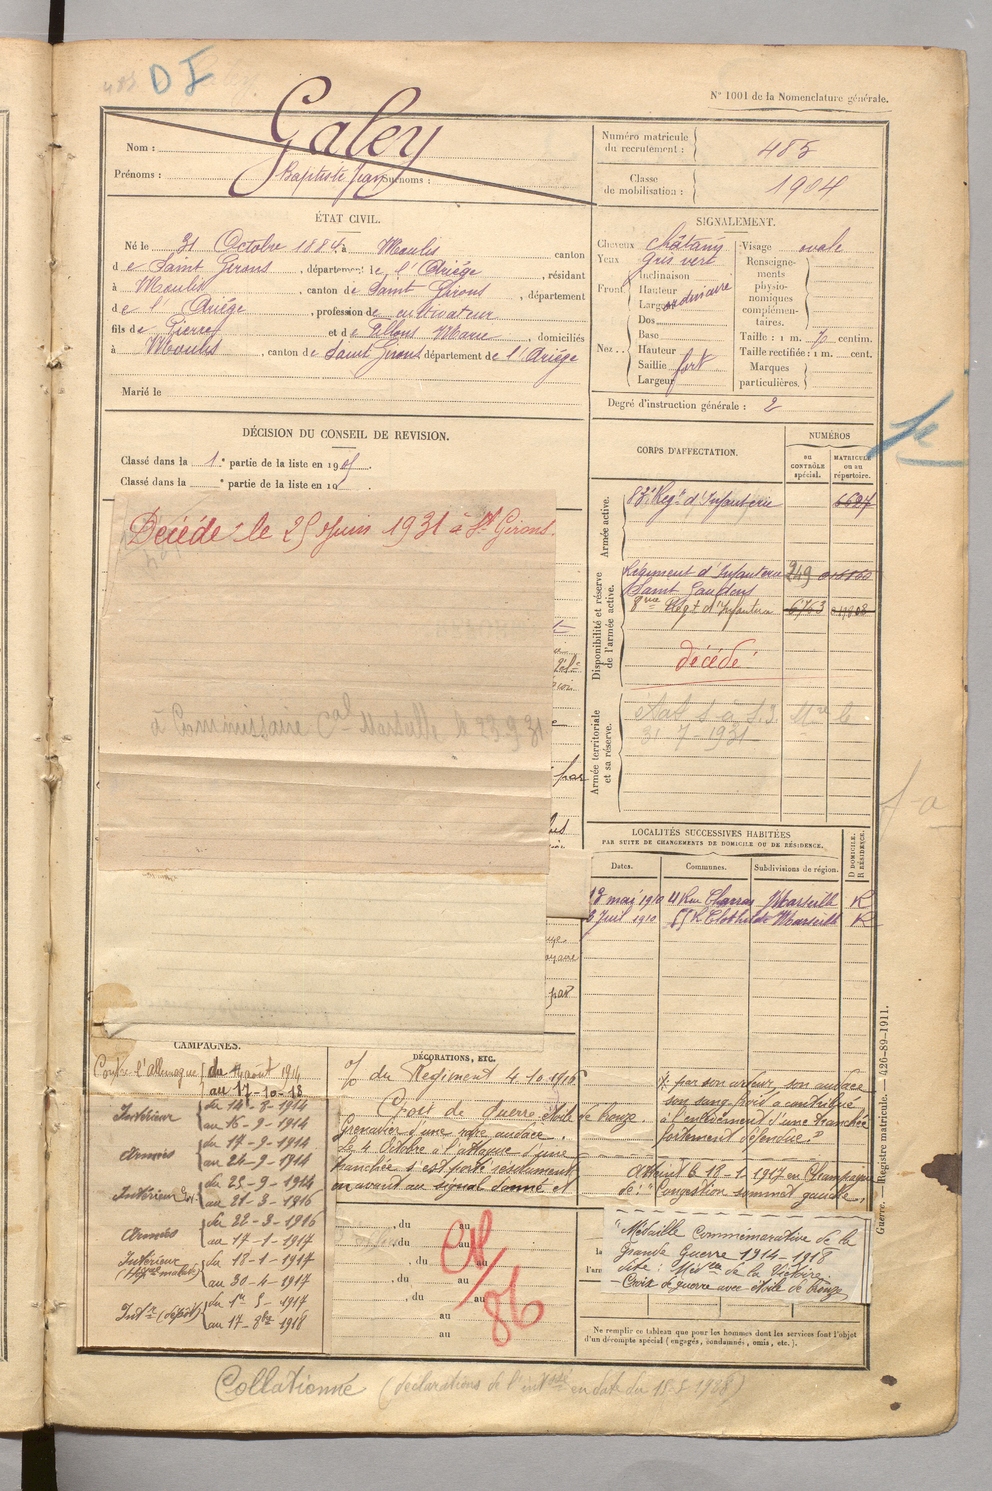 D I
N° 1001 de la Nomenclature générale.
Nom : Galey
Prénoms : Baptiste Jean Surnoms :
Numéro matricule du recrutement : 485
Classe de mobilisation : 1904
ÉTAT CIVIL.
Né le 31 Octobre 1884, à Moulis canton
de Saint Girons, département de l'Ariége, résidant
à Moulis, canton de Saint Girons, département
de l'Ariége, profession de cultivateur
fils de Pierre et de Marie, domiciliés
à Moulis, canton de Saint Girons département de l'Ariége
Marié le
SIGNALEMENT.
Cheveux châtains
Yeux gris vert
Front
Inclinaison
Hauteur
Largeur
ordinaire
Nez
Dos
Base
Hauteur
Saillie fort
Largeur
Visage ovale
Renseignements physionomiques complémentaires.
Taille : 1 m. 70 centim.
Taille rectifiée : 1 m. cent.
Marques particulières.
Degré d'instruction générale : 2
DÉCISION DU CONSEIL DE REVISION.
Classé dans la 1e partie de la liste en 1905.
Classé dans la e partie de la liste en 19
Décédé le 25 Juin 1931 à St Girons.
CORPS D'AFFECTATION.
NUMÉROS
au CONTRÔLE spécial.
MATRICULE ou au répertoire.
Armée active.
83e Régt d'Infanterie
Disponibilité et réserve de l'armée active.
Régiment d'Infanterie 249
Saint Gaudens
8me Régt d'Infanterie 6763
décédé
Armée territoriale et sa réserve.
31-7-1931
LOCALITÉS SUCCESSIVES HABITÉES
PAR SUITE DE CHANGEMENTS DE DOMICILE OU DE RÉSIDENCE.
Dates. Communes. Subdivisions de région. D DOMICILE. R RÉSIDENCE.
mai 1910 Rue Marseille R
Juil 1910 Marseille R
CAMPAGNES.
Contre l'Allemagne du août 1914
au 17-10-18
Intérieur du 14-8-1914
au 16-9-1914
Armées du 17-9-1914
au 24-9-1914
Intérieur du 25-9-1914
au 21-3-1916
Armées du 22-3-1916
au 17-1-1917
Intérieur du 18-1-1917
au 30-4-1917
Intr (dépôt) du 1er 5-1917
au 17-8bre 1918
DÉCORATIONS, ETC.
% du Régiment 4.10.1916
Croix de Guerre étoile de bronze.
Grenadier d'une rare audace.
Le 4 Octobre à l'attaque d'une
tranchée s'est porté résolument
en avant au signal donné et
% par son ardeur, son audace
son sang-froid a contribué
à l'enlèvement d'une tranchée
fortement défendue."
le 18-1-1917 en Champagne
de: "Congestion sommet gauche.
, du au
, du au
, du au
, du au
, du au
au
au
CM/86
"Médaille Commémorative de la
Grande Guerre 1914-1918
dite : Médlle de la Victoire
- Croix de guerre avec étoile de bronze
Ne remplir ce tableau que pour les hommes dont les services font l'objet
d'un décompte spécial (engagés, condamnés, omis, etc.).
Guerre. — Registre matricule. — 426-89-1911.
Collationné (déclarations de l'intéssé en date du 18.8.1928)